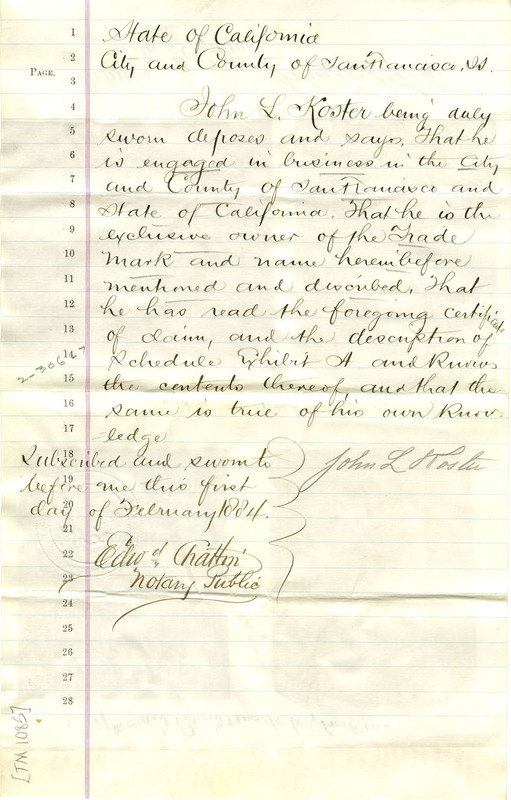 PAGE.
1 State of California
2 City and County of San Francisco, SS.
3
4 John L. Koster being duly
5 sworn deposes and says, That he
6 is engaged in business in the City
7 and County of San Francisco and
8 State of California. That he is the
9 exclusive owner of the Trade
10 Mark and name hereinbefore
11 mentioned and described. That
12 he has read the foregoing certificate
13 of claim, and the description of
14 Schedule Exhibit A and knows
15 the contents thereof, and that the
16 same is true of his own know-
17 ledge
18 Subscribed and sworn to
19 before me this first
20 day of February 1884.
21
22 Edwd
23 Notary Public
24
25
26
27
28
John L Koster
[TM 1085]